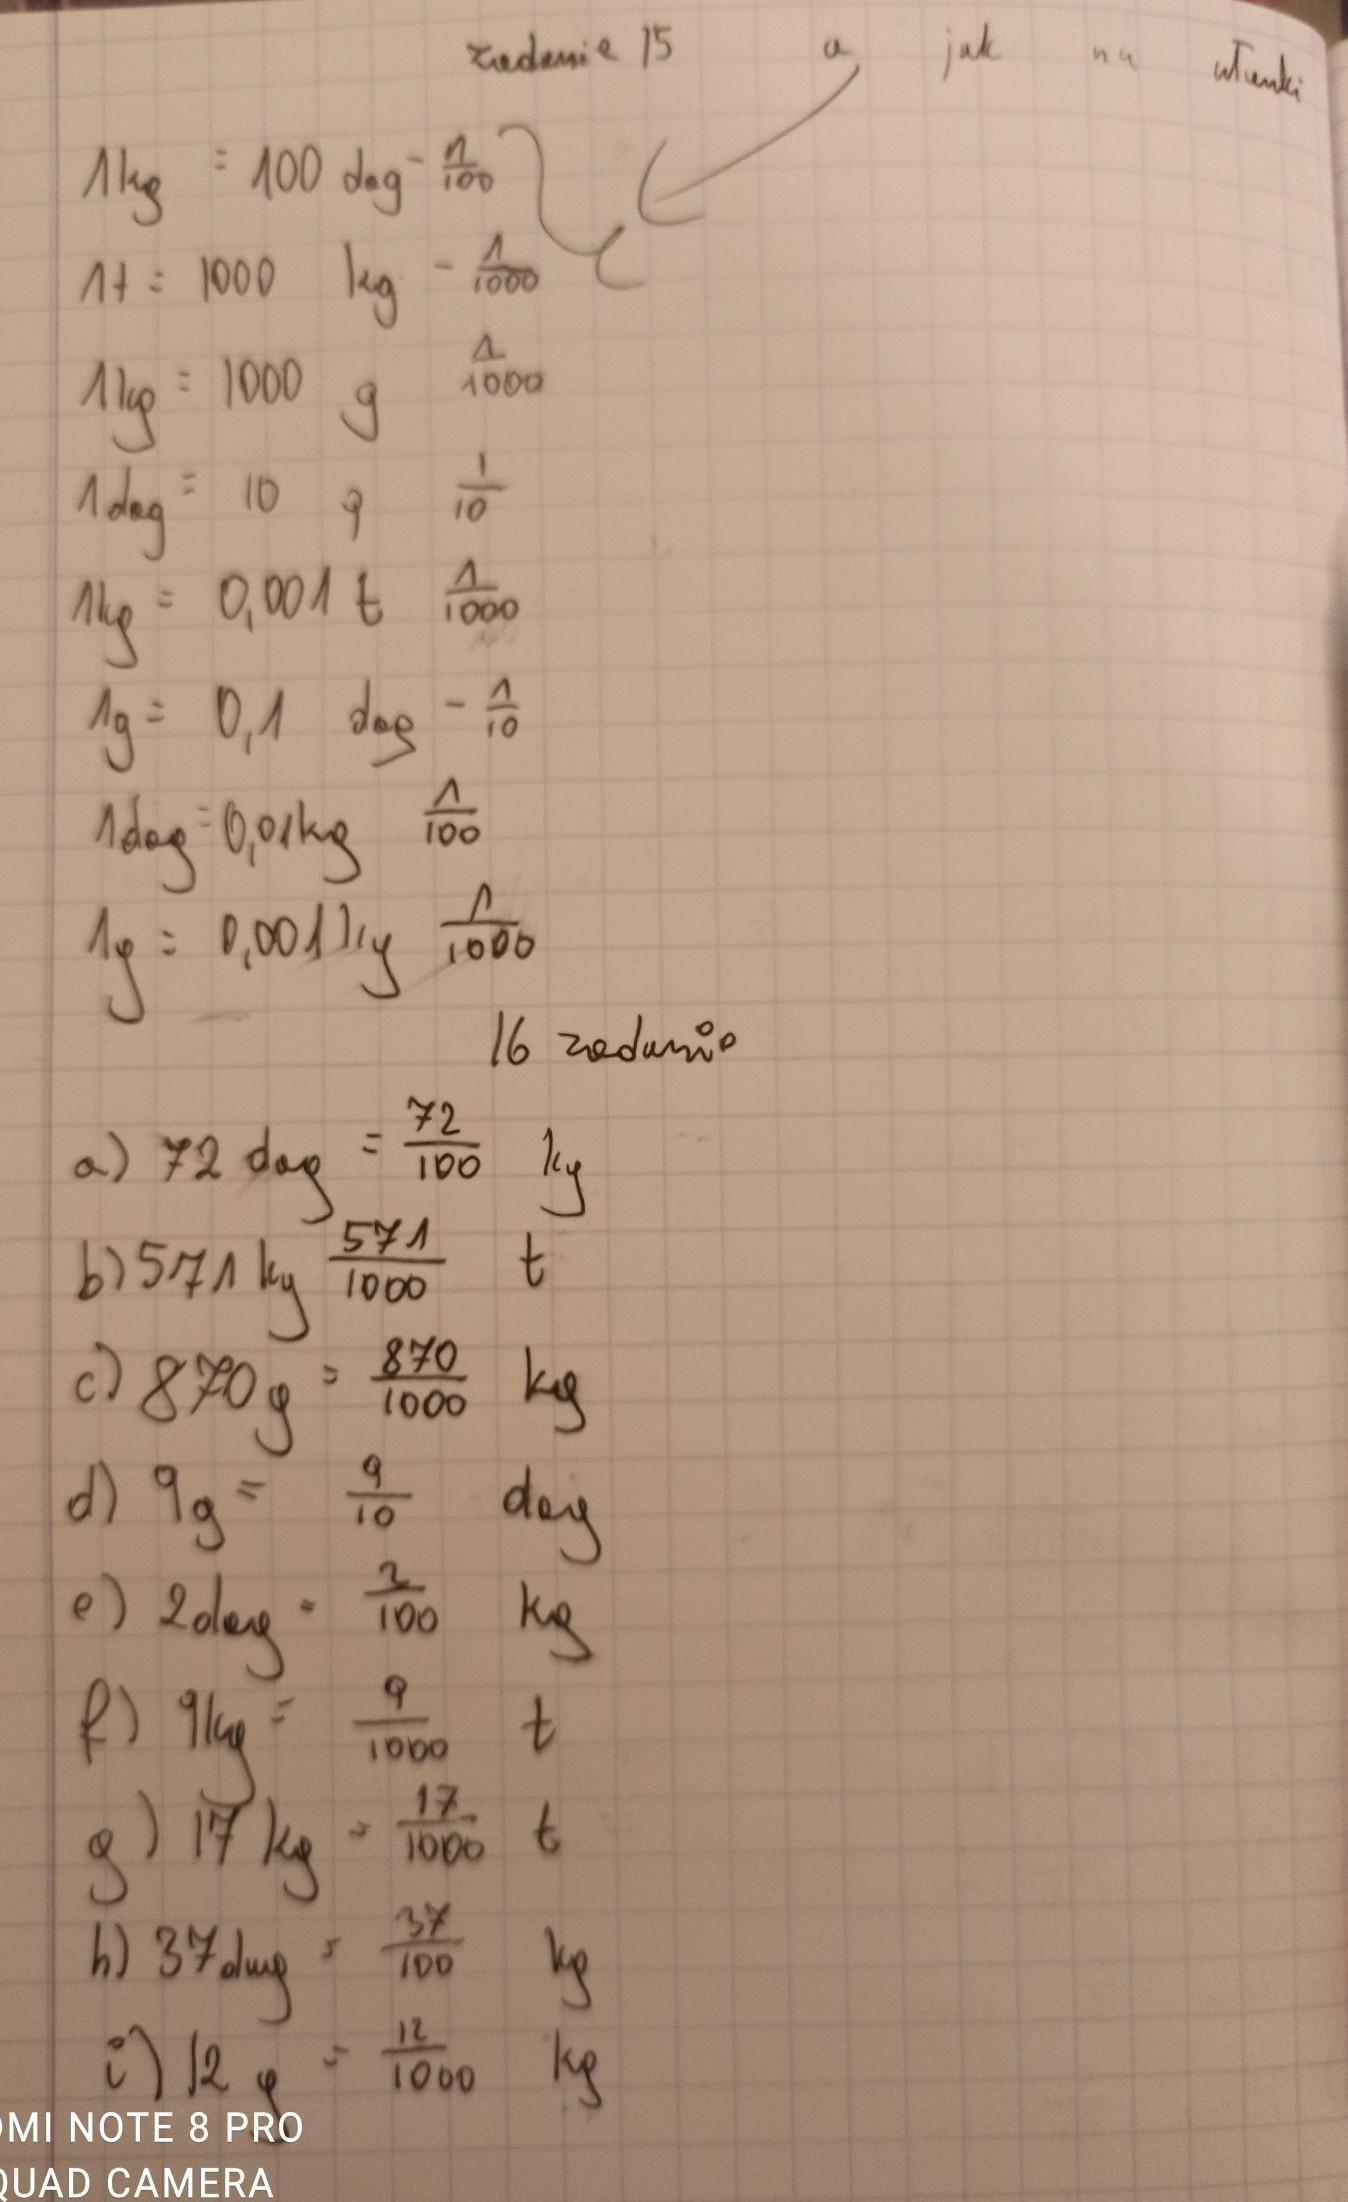 zadanie 15 a jak na ułamki
1kg = 100 dag - 1/100
1t = 1000 kg - 1/1000
1kg = 1000 g 1/1000
1dag = 10 g 1/10
1kg = 0,001 t 1/1000
1g = 0,1 dag - 1/10
1dag = 0,01kg 1/100
1g = 0,001 kg 1/1000
16 zadanie
a) 72 dag = 72/100 kg
b) 571 kg 571/1000 t
c) 870g = 870/1000 kg
d) 9g = 9/10 dag
e) 2dag = 2/100 kg
f) 9kg = 9/1000 t
g) 17 kg = 17/1000 t
h) 37dag = 37/100 kg
i) 12 g = 12/1000 kg
DMI NOTE 8 PRO
QUAD CAMERA